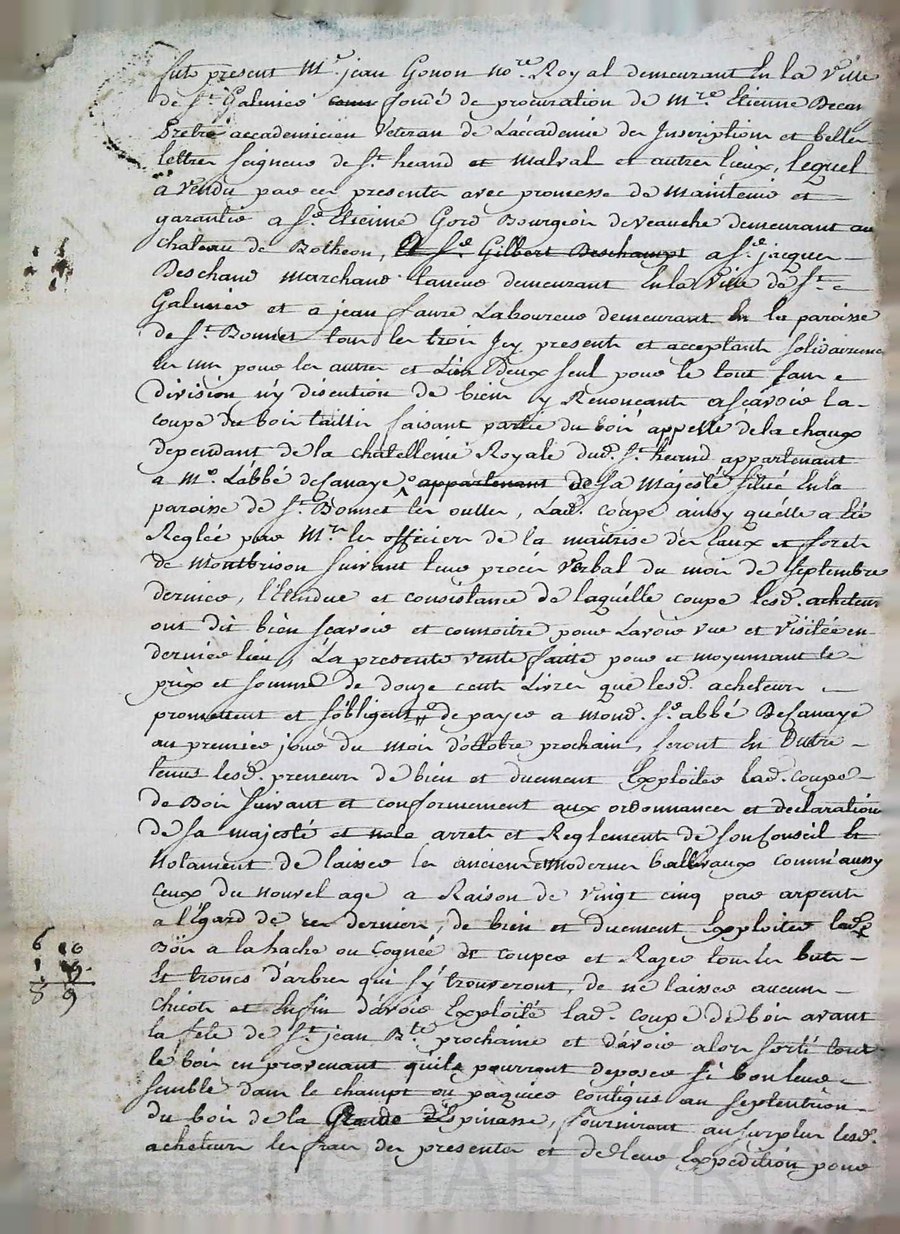 fut present Mr. jean Gonon nore. Royal demeurant En la Ville
de St. Galmier comm fondé de procuration de Mre. Etienne
Pretre accademicien Veteran de L'accademie des Inscriptions et belles
lettres Seigneur de St. heand et Malval et autres lieux, lequel
a vendu par ces presentes avec promesse de Maintenir et
garantir a Sr. Etienne Gord Bourgeois de Veauche demeurant au
chateau de Botheon, Et Sr. Gilbert Deschampt a Sr. jacques
Deschand marchand taneur demeurant En la Ville de St.
Galmier et a jean faure Laboureur demeurant En la paroisse
de St. Bonnet tous les trois Icy presents et acceptants Solidairement
les uns pour les autres et L'un D'eux seul pour le tout sans
division n'y discution de biens y Renonceant ascavoir la
coupe du bois taillis faisant partie du bois appellé de la chaux
dependant de la chatellenie Royale dud. St. heand appartenant
a Mr. L'abbé de Sanaye appartenant de Sa Majesté Situé En la
paroisse de St. Bonnet les oulles, Lad. coupe ainsy qu'elle a Eté
Reglée par Mrs. les officiers de la maitrise des Eaux et forets
de Montbrison suivant leur procés Verbal du mois de Septembre
dernier, l'Etendue et consistance de laquelle coupe lesd. acheteurs
ont dit bien scavoir et connoitre pour L'avoir vue et Visitée en
dernier lieu, La presente vente faite pour et moyennant le
prix et somme de douze cent Livres que lesd. acheteurs
promettent et s'obligent de payer a mond. Sr. abbé De Sanaye
au premier jour du mois d'octobre prochain, seront En Outre
tenus lesd. preneurs de bien et duement Exploiter lad. coupe
de Bois suivant et conformement aux ordonnances et declarations
de sa majesté et arrets et Reglements de son Conseil Et
Notament de laisser les anciens et modernes balliveaux comm'aussy
ceux du nouvel age a Raison de Vingt cinq par arpent
a l'Egard de ces derniers, de bien et duement Exploiter led.
Bois a la hache ou Cognée de coupes et Razer tous les
Et troncs d'arbres qui s'y trouveront, de ne laisser aucun
chicots et Enfin d'avoir Exploité lad. coupe de bois avant
la fete de St. jean Bte. prochaine et d'avoir alors sorti tout
le bois en provenant qu'ils pourront deposer si bon leur
semble dans le champt ou paquier contigus au Septentrion
du bois de la Grande Espinasse, fourniront au surplus lesd.
acheteurs les frais des presentes et de leur Expedition pour
6 10
1
5 9
CHAREYRON